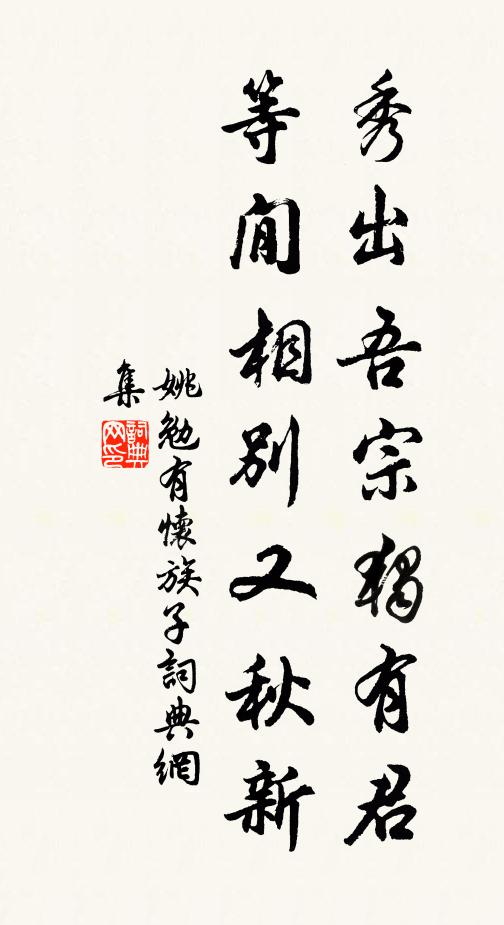 秀出吾宗独有君
等闲相别又秋新
姚勉有懷族子詞典網
集
詞典网印